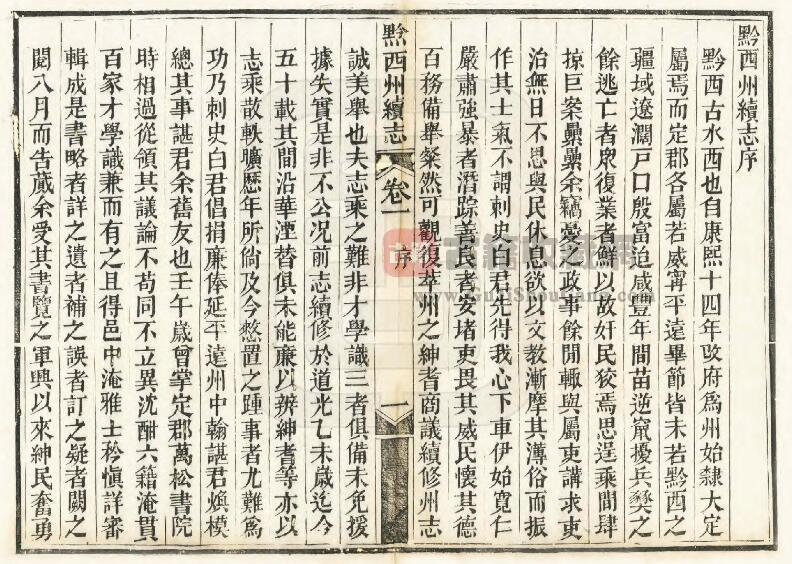 黔西州續志序
黔西古水西也自康熙十四年改府爲州始隸大定
屬焉而定郡各屬若威寧平遠畢節皆未若黔西之
疆域遼濶戸口殷富迨咸豐年間苗逆竄擾兵燹之
餘逃亡者衆復業者鮮以故奸民狡焉思逞乘間肆
掠巨案纍纍余竊憂之政事餘閒輙與屬吏講求吏
治無日不思與民休息欲以文教漸摩其薄俗而振
作其士氣不謂刺史白君先得我心下車伊始寛仁
嚴肅強暴者潛踪善良者安堵吏畏其威民懷其德
百務備舉粲然可觀復萃州之紳耆商議續修州志
黔西州續志 卷一 序 一
誠美舉也夫志乘之難非才學識三者俱備未免援
據失實是非不公况前志續修於道光乙未歲迄今
五十載其間沿革湮替俱未能亷以辨紳耆等亦以
志乘散軼曠歷年所倘及今憗置之踵事者尤難爲
功乃刺史白君倡捐廉俸延平遠州中翰諶君煥模
總其事諶君余舊友也壬午歲曾掌定郡萬松書院
時相過從領其議論不苟同不立異沈酣六籍淹貫
百家才學識兼而有之且得邑中淹雅士矜愼詳審
輯成是書略者詳之遺者補之誤者訂之疑者闕之
閱八月而告蕆余受其書覽之軍興以來紳民奮勇
古籍收藏網
www.GuJiShouCang.com